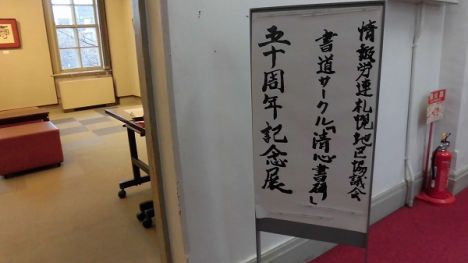 情報労連札幌地区協議会
書道サークル「清心書研」
五十周年記念展
消火器